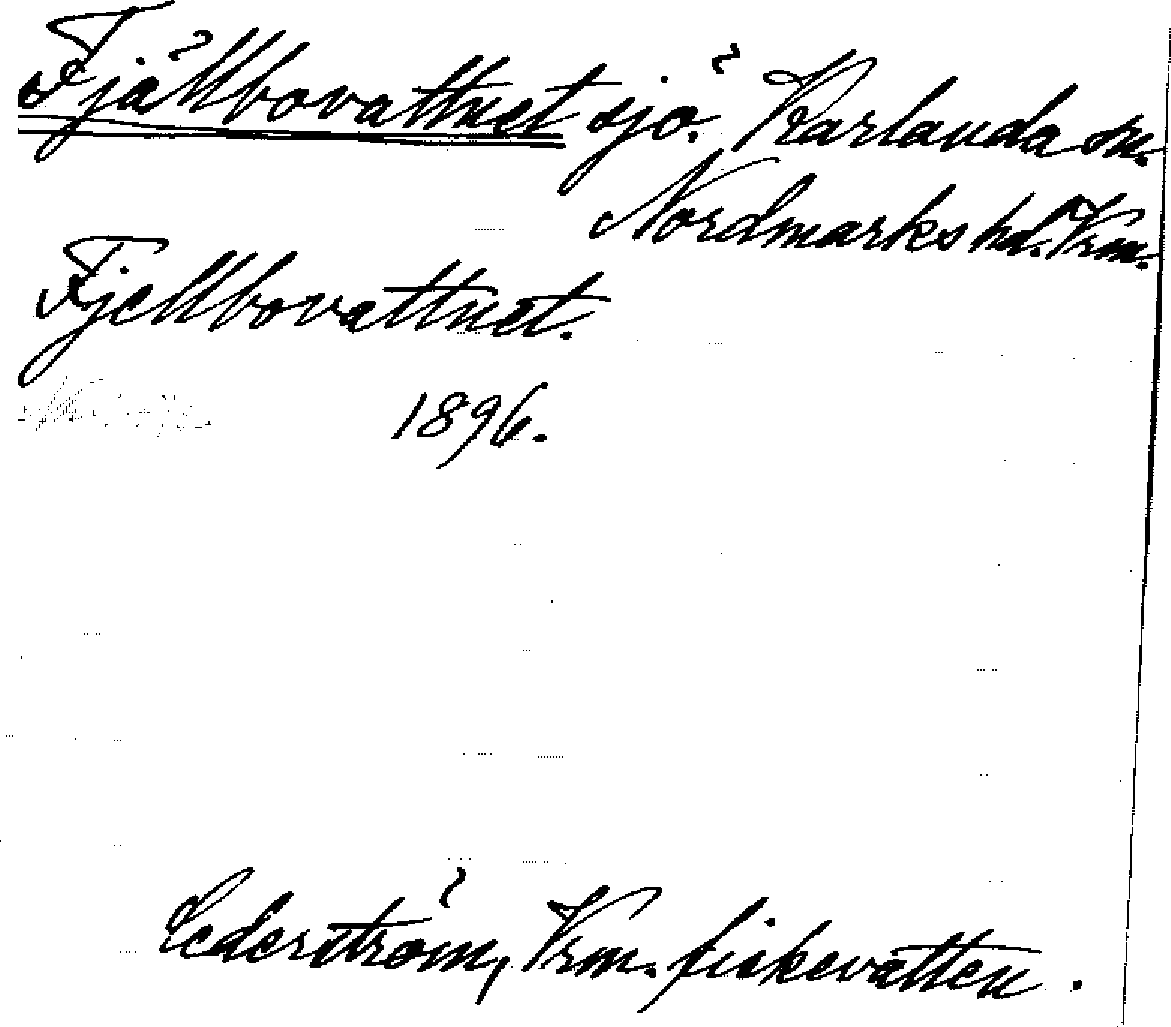 Fjällbovattnet sjö. Karlanda sn.
Nordmarks hd. Vrm.
Fjellbovattnet.
1896.
Cederström, Vrm. fiskevatten.